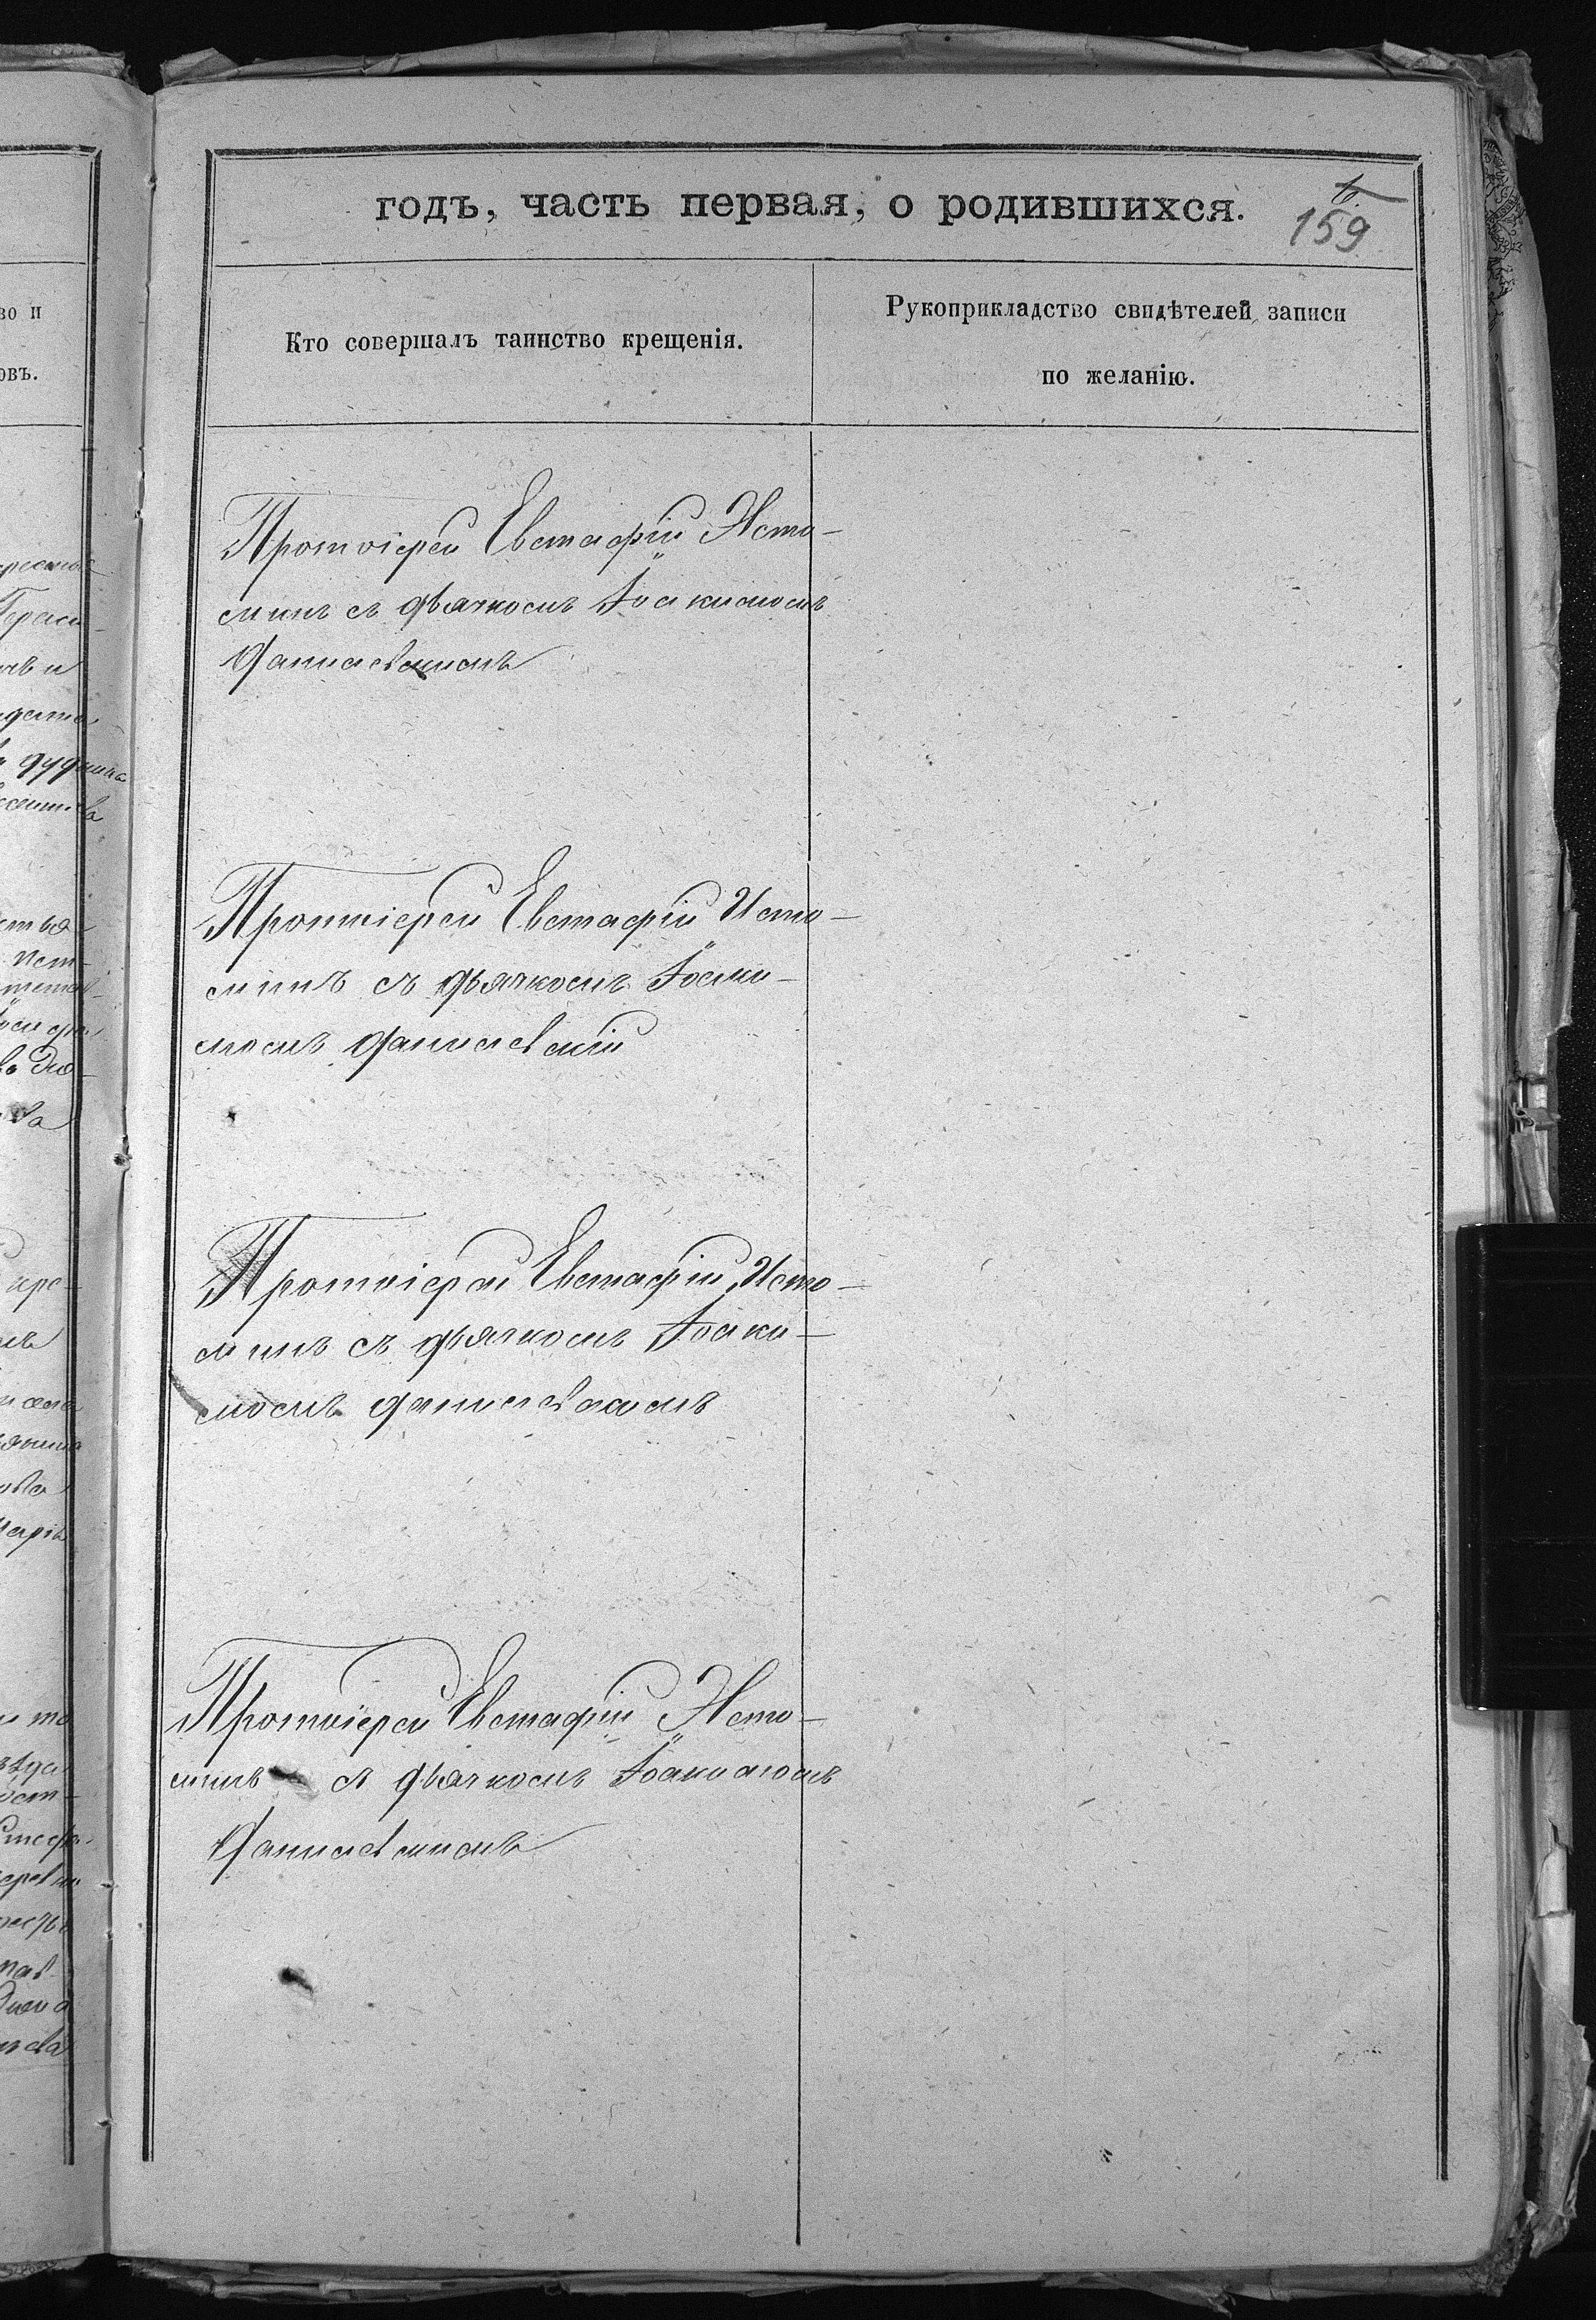 годъ, часть первая, о родившихся.
159
Кто совершалъ таинство крещенія.
Рукоприкладство свидѣтелей записи
по желанію.
во и
овъ.
Протоіерей Евстафій Исто-
минъ съ дьячкомъ Іоакимомъ
Данилевскимъ
Протоіерей Евстафій Исто-
минъ съ дьячкомъ Іоаки-
момъ Данилевскій
Протоіерей Евстафій Исто-
минъ съ дьячкомъ Іоаки-
момъ Данилевскимъ
Протоіерей Евстафій Исто-
минъ съ дьячкомъ Іоакимомъ
Данилевскимъ